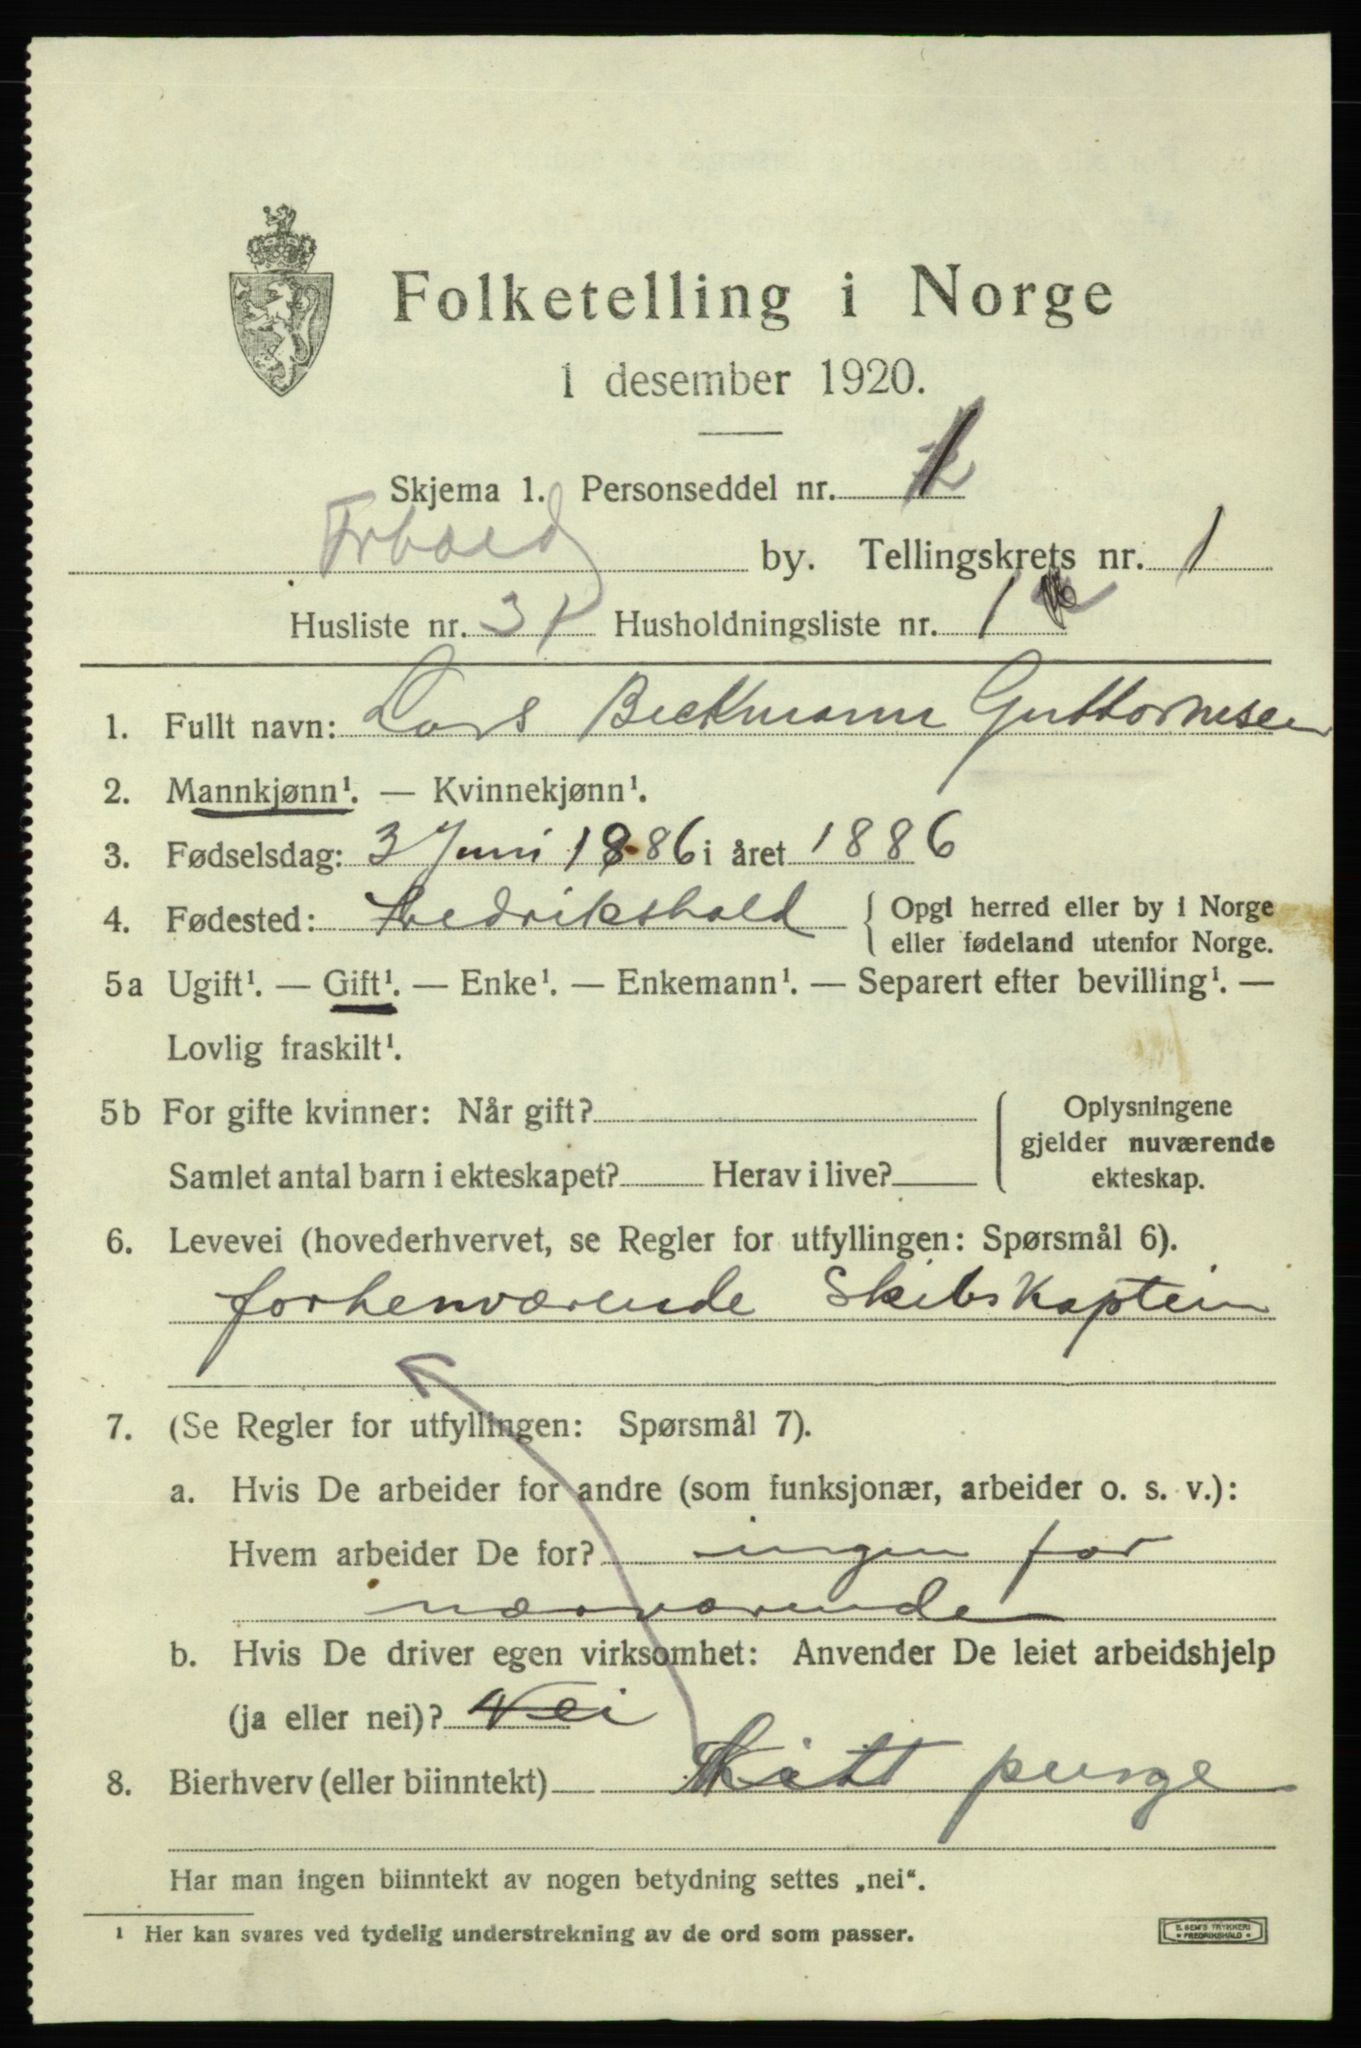 Folketelling i Norge
1 desember 1920.
Skjema 1. Personseddel nr.
Frhald by. Tellingskrets nr. 1
Husliste nr. 31 Husholdningsliste nr. 1
1. Fullt navn: Lars Beckmann Guttormsen
2. Mannkjønn¹. — Kvinnekjønn¹.
3. Fødselsdag: 3 Juni 1886 i året 1886
4. Fødested: Fredrikshald { Opgi herred eller by i Norge
eller fødeland utenfor Norge.
5a Ugift¹. — Gift¹. — Enke¹. — Enkemann¹. — Separert efter bevilling¹. —
Lovlig fraskilt¹.
5b For gifte kvinner: Når gift? { Oplysningene
gjelder nuværende
Samlet antal barn i ekteskapet? Herav i live? ekteskap.
6. Levevei (hovederhvervet, se Regler for utfyllingen: Spørsmål 6).
forhenværende Skibskaptein
7. (Se Regler for utfyllingen: Spørsmål 7).
a. Hvis De arbeider for andre (som funksjonær, arbeider o. s. v.):
Hvem arbeider De for? ingen for
nærværende
b. Hvis De driver egen virksomhet: Anvender De leiet arbeidshjelp
(ja eller nei)? Nei
8. Bierhverv (eller biinntekt) penge
Har man ingen biinntekt av nogen betydning settes „nei“.
¹ Her kan svares ved tydelig understrekning av de ord som passer.
E. SEM'S TRYKKERI
* FREDRIKSHALD *